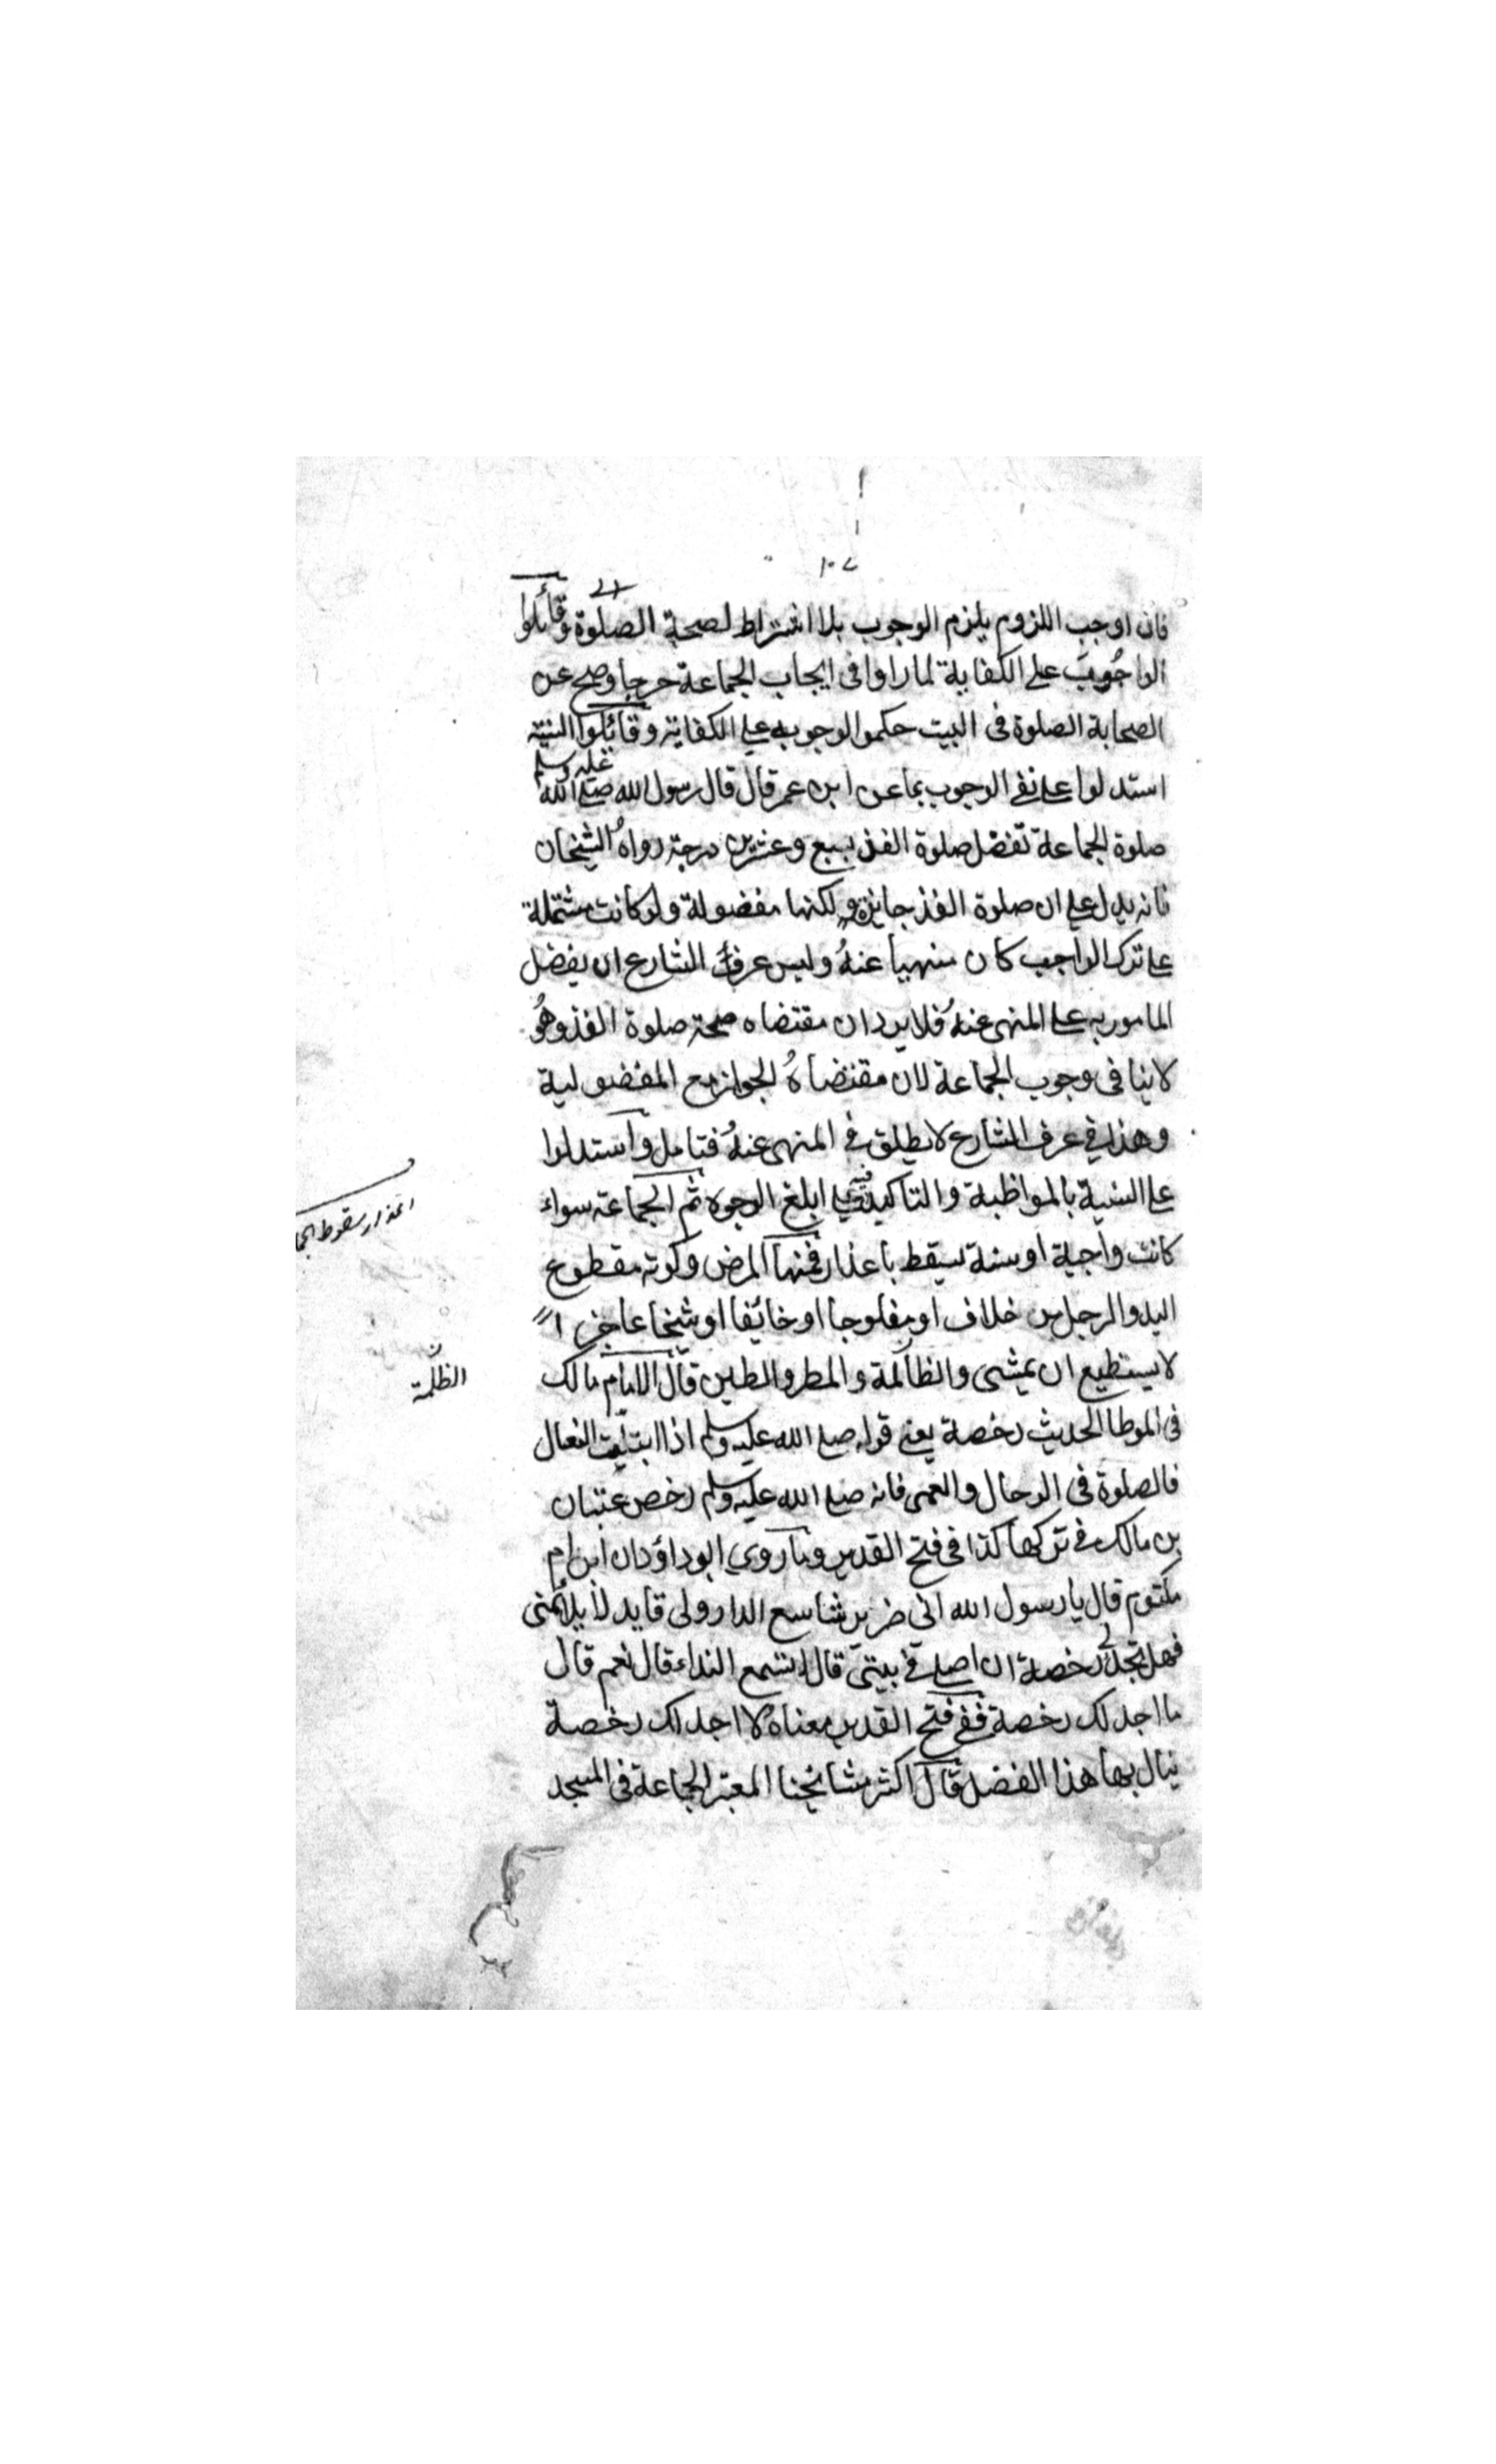 ١٠٧
فان اوجب اللزوم يلزم الوجوب بلا اشتراط لصحة الصلوة وقائلوا
الواجوب على الكفاية لما راوا فى ايجاب الجماعة حرجا وصح عن
الصحابة الصلوة فى البيت حكموا لوجوب على الكفاية وقائلوا السنية
استدلوا على نفى الوجوب بما عن ابن عمر قال قال رسول الله صلى الله عليه وسلم
صلوة الجماعة تفضل صلوة الفذ بسبع وعشرين درجة رواه الشيخان
فانه يدل على ان صلوة الفذ جايزة ولكنها مفضولة ولو كانت مشتملة
على ترك الواجب كان منهيا عنه وليس عرف الشارع ان يفضل
المامور به على المنهى عنه فلا يرد ان مقتضاه صحة صلوة الفذ وهو
لا ينافى وجوب الجماعة لان مقتضاه الجواز مع المفضولية
وهذا فى عرف الشارع لا يطلق فى المنهى عنه فتامل واستدلوا
على السنية بالمواظبة والتاكيد فيه على ابلغ الوجوه ثم الجماعة سواء
كانت واجبة او سنة تسقط باعذار فمنها المرض وكونه مقطوع
اليد والرجل من خلاف او مفلوجا او خائفا او شيخا عاجزا
لا يستطيع ان يمشى والظالمة والمطر والطين قال الامام مالك
فى الموطا الحديث رخصة يعنى قوله صلى الله عليه وسلم اذا ابتلت النعال
فالصلوة فى الرحال والعمى فانه صلى الله عليه وسلم رخص عتبان
بن مالك فى تركها كذا فى فتح القدير وما روي ابو داؤد ان ابن ام
مكتوم قال يا رسول الله انى ضرير شاسع الدار ولى قايد لا يلائمنى
فهل تجد لى رخصة ان اصلى فى بيتى قال اتسمع النداء قال نعم قال
ما اجد لك رخصة ففى فتح القدير معناه لا اجد لك رخصة
ينال بها هذا الفضل قال اكثر مشائخنا المعتبر الجماعة فى المسجد
اعذار سقوط الجما
الظلمة